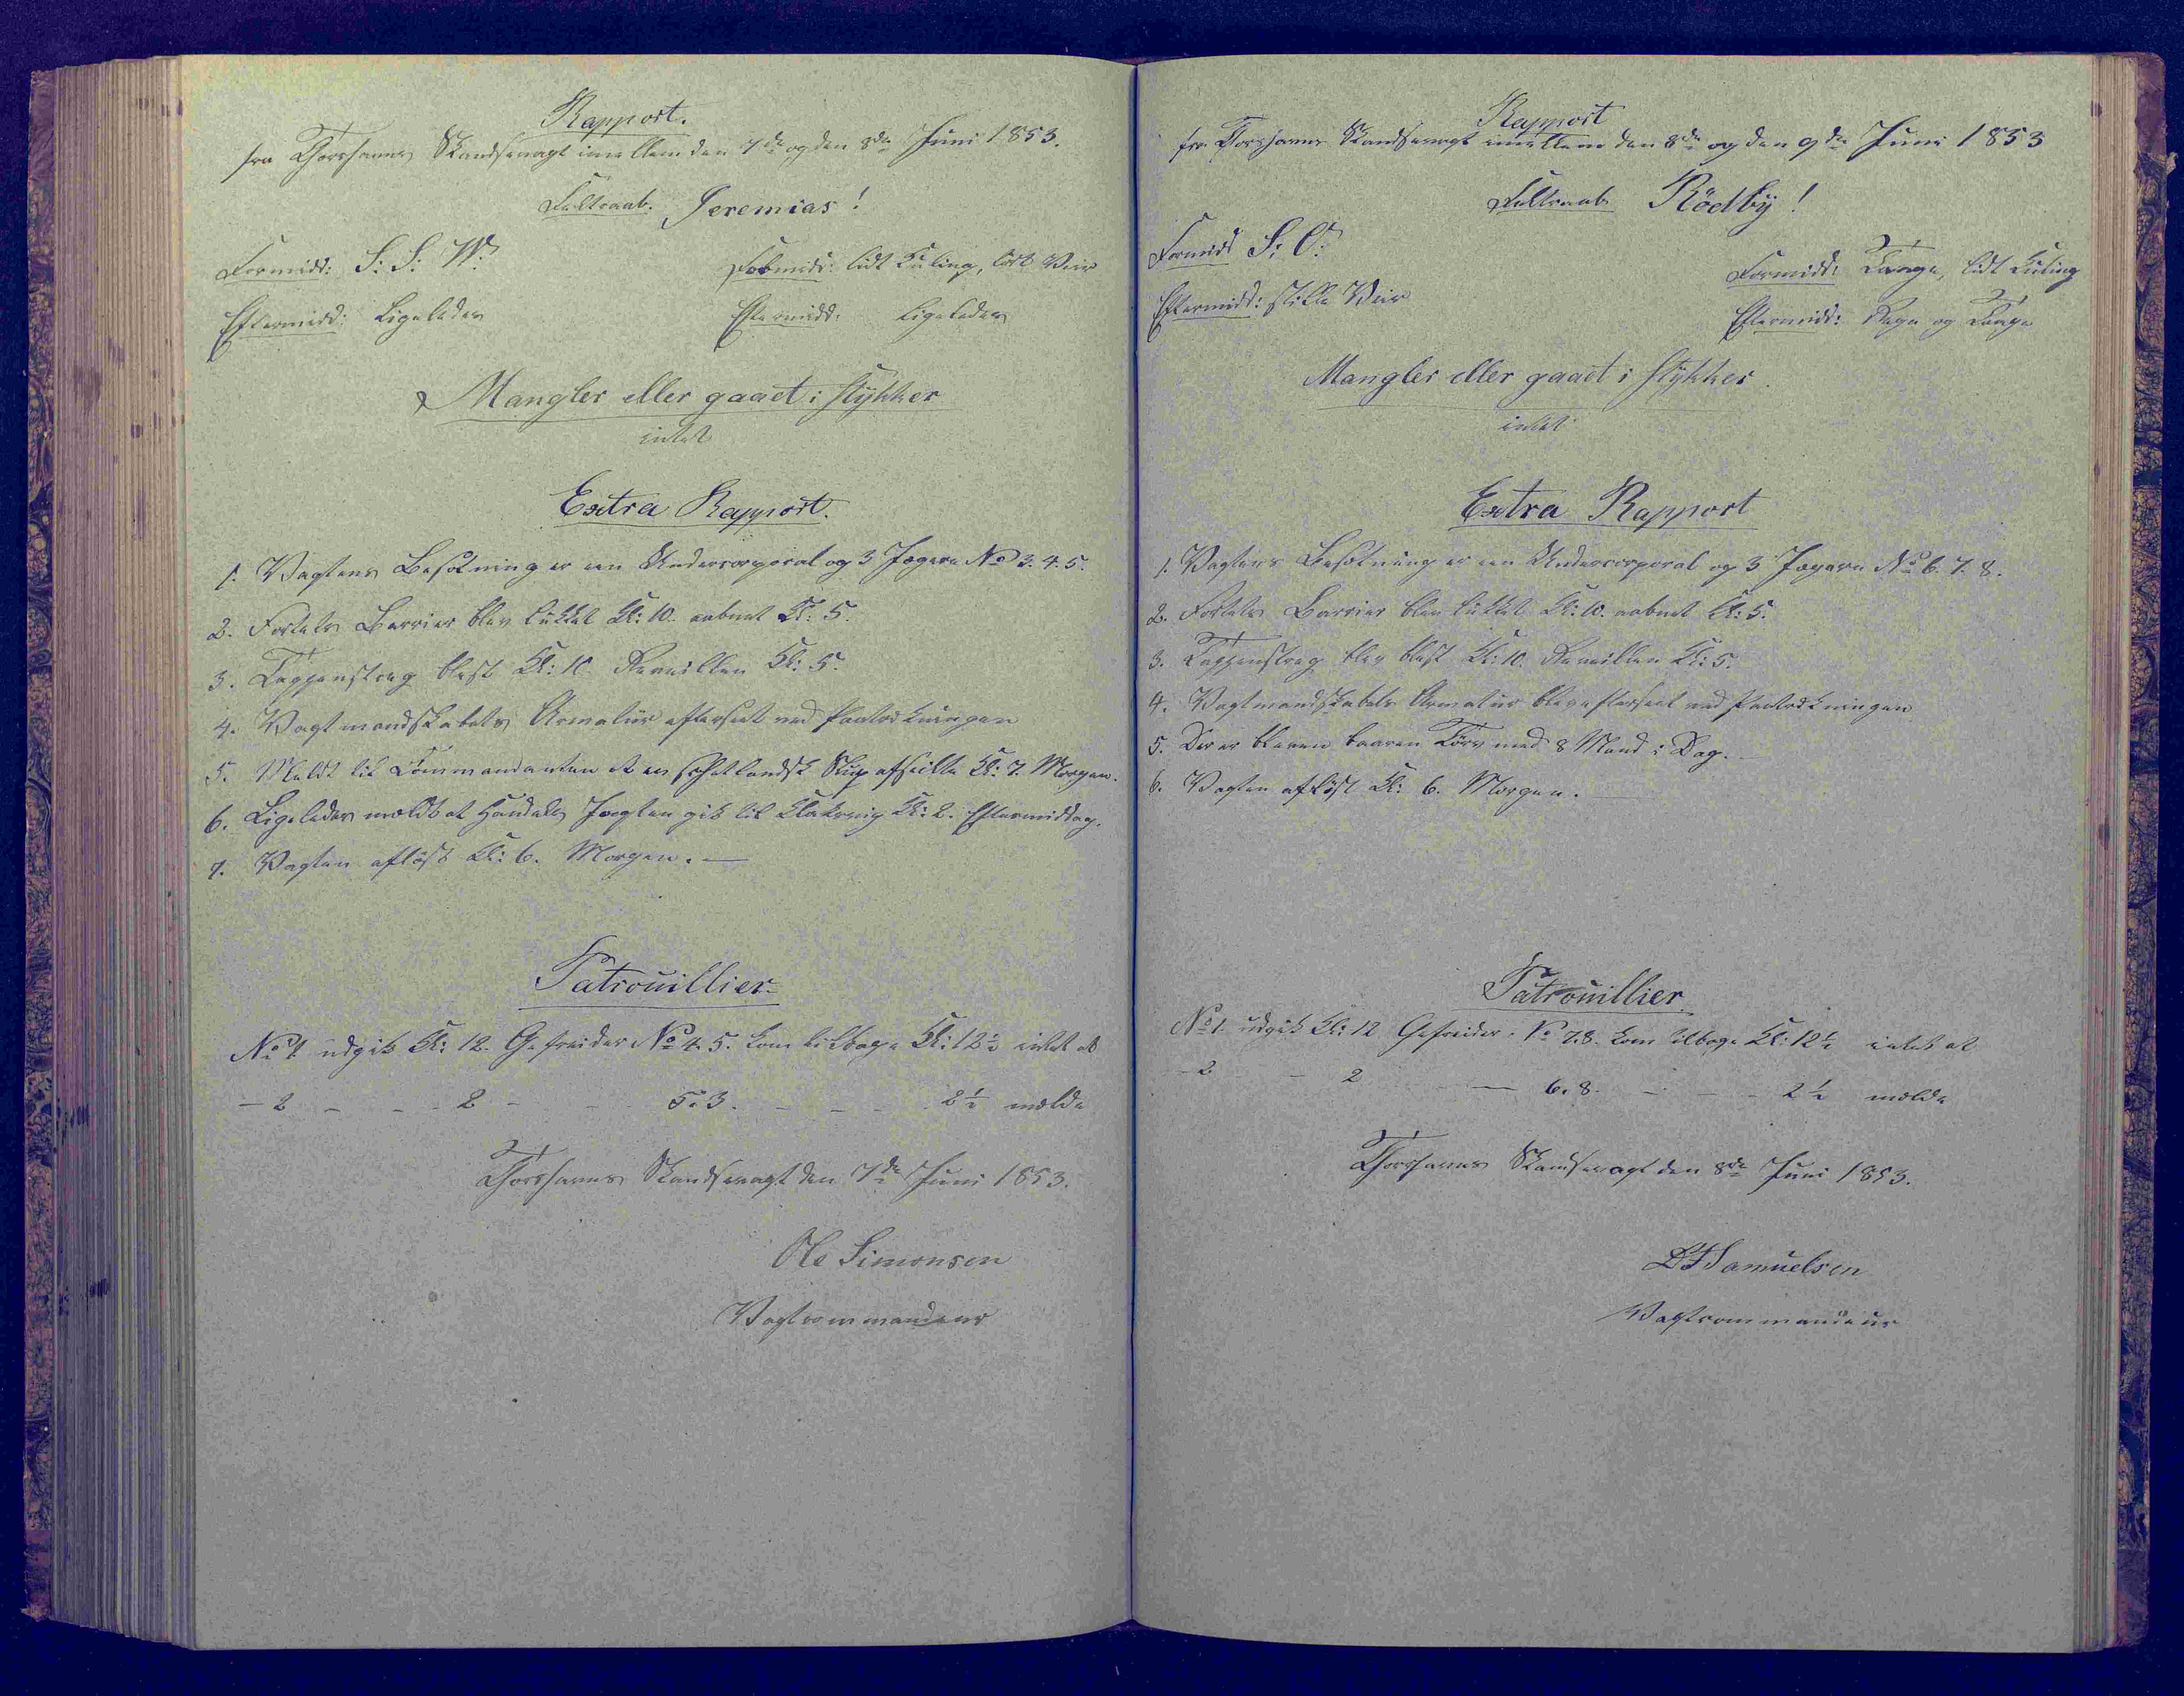 Rapport.
fra Thorshavns Skandsevagt imellem den 7de og den 8de Juni 1853.
Feltraab. Jeremias!
Formidd: S: S: W: Formidd: lidt Kuling, tört Veir
Eftermidd: Ligeledes Eftermidd: Ligeledes
Mangler eller gaaet i stÿkker
intet
Extra Rapport.
1. Vagtens Besætning er een Undercorporal og 3 Jægere No 3. 4. 5.
2. Fortets Barrier blev lukket Kl: 10. aabnet Kl: 5.
3. Tappenstreg blæst Kl: 10. Reveillen Kl: 5.
4. Vagtmandskabets Armatur efterseet ved Paatrækningen
5. Meldt til Commandanten at en schetlandsk Slup afseilte Kl: 7. Morgen.
6. Ligeledes meldt at Handels Jagten gik til Klaksvig Kl: 2. Eftermiddag.
7. Vagten aflöst Kl: 6. Morgen. —
Patrouillier
No 1 udgik Kl: 12. Gefreider No 4. 5. kom tilbage Kl: 12½ intet at
— 2 — — 2 — — 5. 3. — — — 2½ melde
Thorshavns Skandsevagt den 7de Juni 1853.
Ole Simonsen
Vagtcommandeur
Rapport
fra Thorshavns Skandsevagt imellem den 8de og den 9de Juni 1853
Feltraab Rödbÿ!
Formidd S: O: Formidd: Taage, lidt Kuling
Eftermidd: stille Veir Eftermidd: Regn og Taage
Mangler eller gaaet i stÿkker
intet
Extra Rapport
1. Vagtens Besætning er een Undercorporal og 3 Jægere No 6. 7. 8.
2. Fortets Barrier blev lukket Kl: 10. aabnet Kl: 5.
3. Tappenstreg blev blæst Kl: 10. Reveillen Kl: 5.
4. Vagtmandskabets Armatur blev efterseet ved Paatrækningen
5. Der er bleven baaren Törv med 8 Mand i Dag. —
6. Vagten aflöst Kl: 6. Morgen. —
Patrouillier
No 1. udgik Kl: 12 Gefreider No 7. 8. kom tilbage Kl: 12½ intet at
— 2 — 2 — 6. 8. — — — 2½ melde
Thorshavns Skandsevagt den 8de Juni 1853.
Samuelsen
Vagtcommandeur